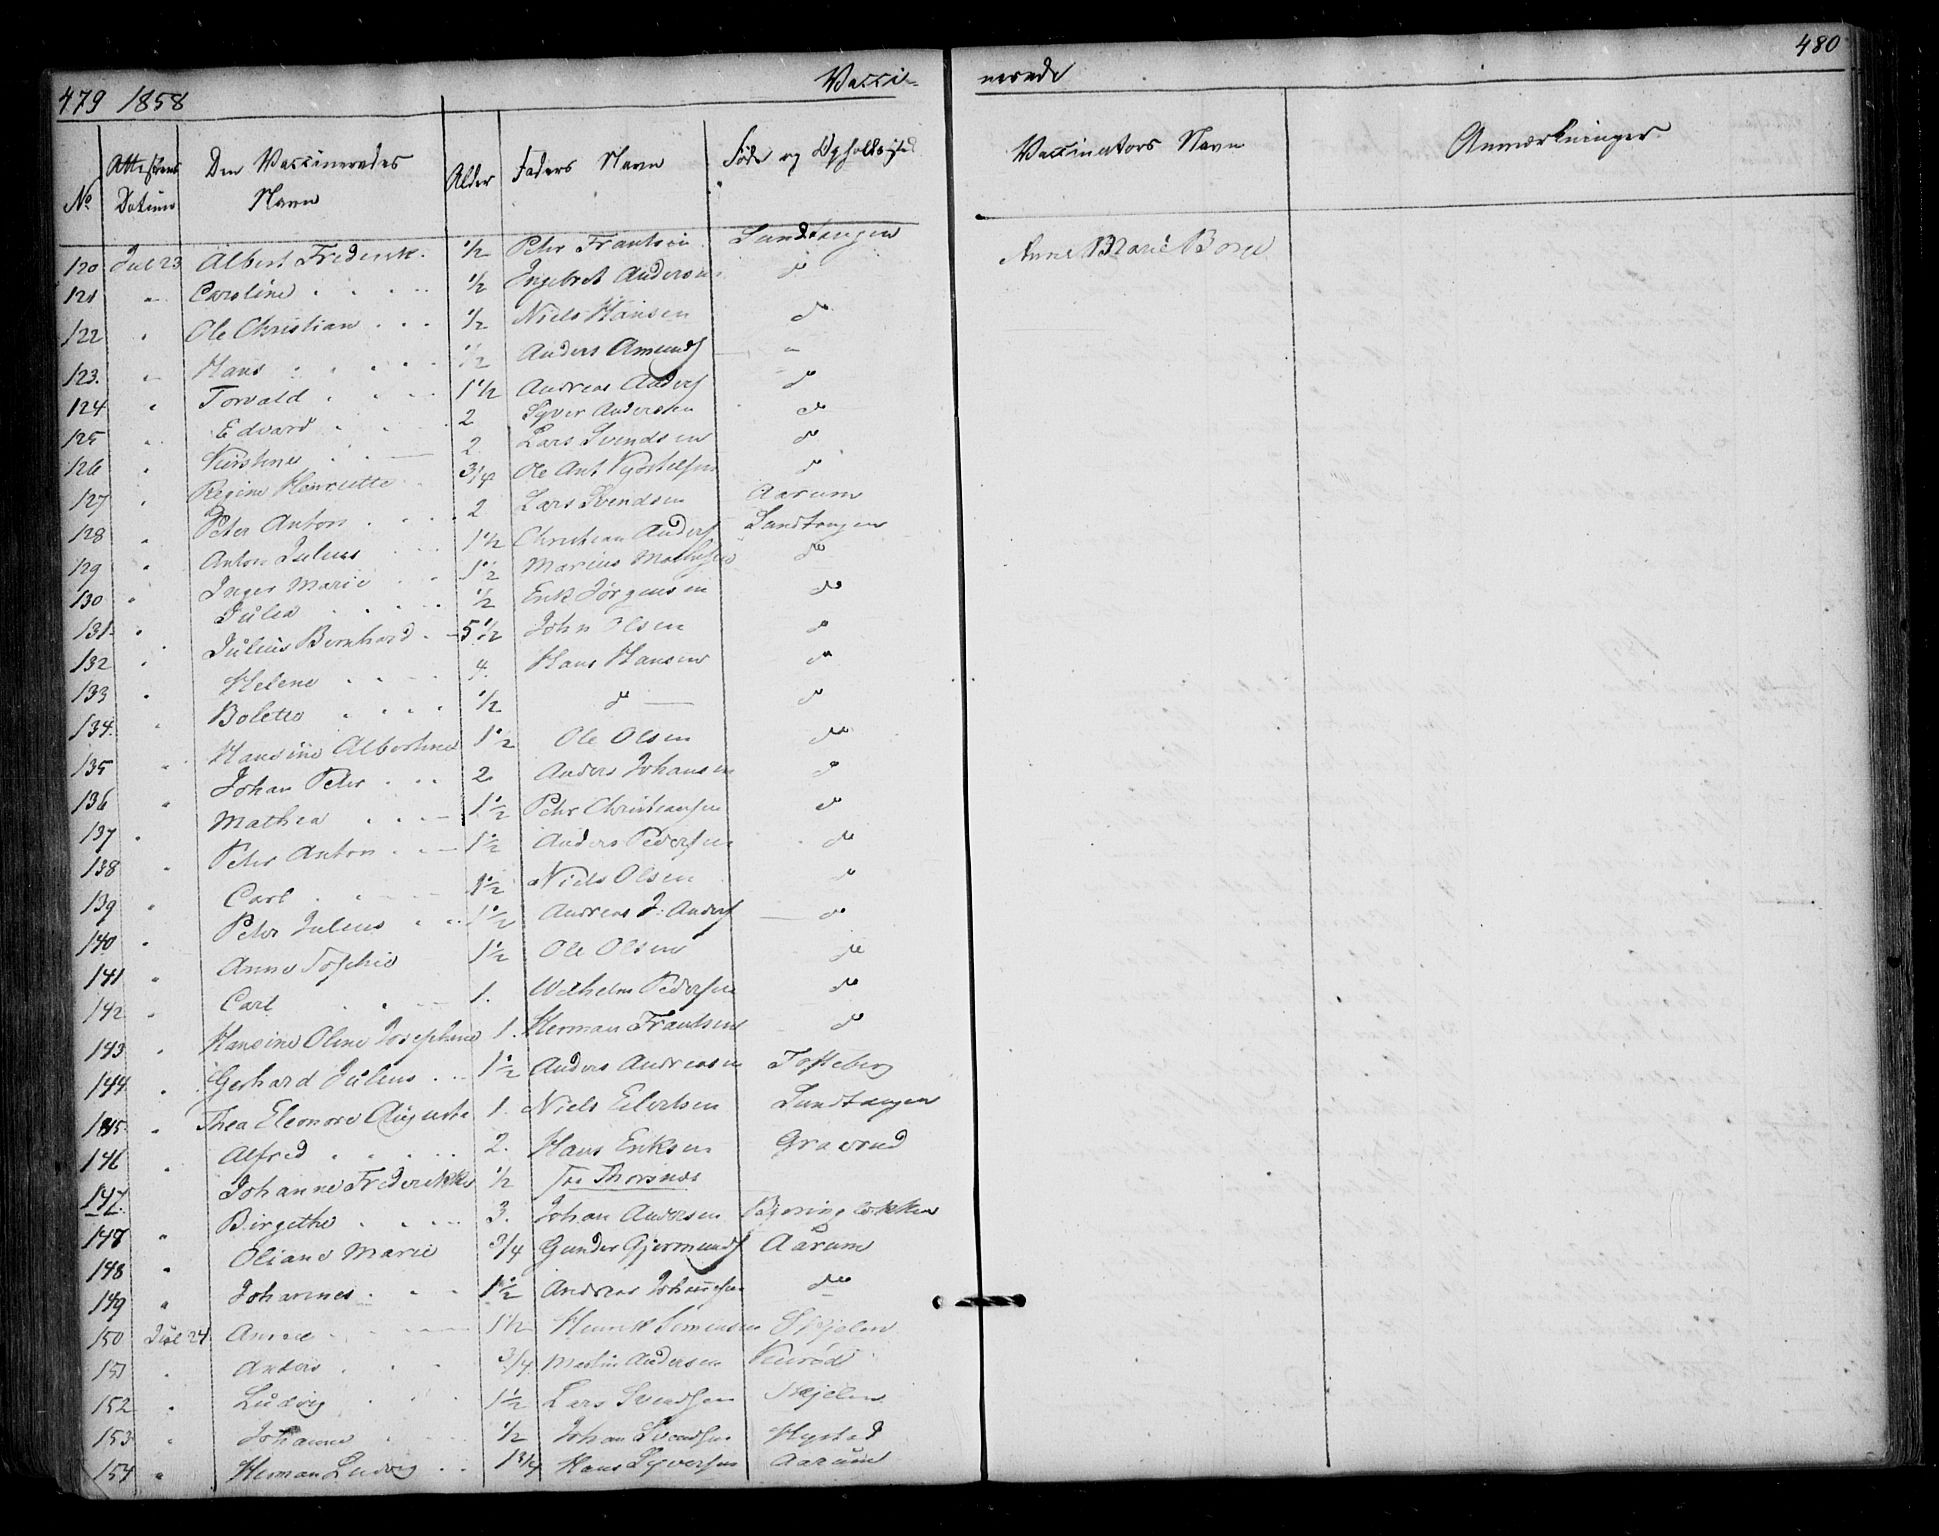 479 1858 Vacci-
nerede 480
No Attestens Datum Den Vaccineredes Navn Alder Faders Navn Føde og Opholdssted Vaccinators Navn Anmærkninger
120 Jul 23 Albert Frederik. 1/2 Peter Frantsen Sandtangen Anne Marie Borge
121 " Caroline 1/2 Ingebret Andersen do
122 " Ole Christian 1/2 Niels Hansen do
123. " Hans 1/2 Anders Amunds "
124 " Torvald 1 1/2 Andreas Anders do
125 " Edvard 2 Syver Andersen do
126 " Kirstine 2 Lars Svendsen do
127 " Regine Henriette 3/4 Ole Ant do
128 " Peter Anton 2 Lars Svendsen Aarum
129 " Anton Julius 1 1/2 Christian Anders Sandtangen
130 " Inger Marie 1 1/2 Marius do
131 " Julia 1/2 Erik Jørgensen do
132 " Julius Bernhard 5 1/2 John Olsen do
133 " Helene 4. Hans Hansen do
134. " Bolette 1/2 do do
135 " Hansine Albertine 1 1/2 Ole Olsen do
136 " Johan Peter 2 Anders Johansen do
137 " Mathea 1 1/2 Peter Christiansen do
138 " Peter Anton 1 1/2 Anders Pedersen do
139 " Carl 1 1/2 Niels Olsen do
140 " Peter Julius 1 1/2 Andreas J: Anders do
141 " Anne Sophie 1 1/2 Ole Olsen do
142 " Carl 1. Wilhelm Pedersen do
143 " Hansine Oline Josephine 1. Herman Frantsen do
144. " Gerhard Julius 1 1/2 Anders Andreasen Tofteberg
145 " Thea Eleonore Auguste 1. Niels Eilertsen Sandtangen
146 " Alfred 2. Hans Eriksen Graverud
147. Johanne Frederikke 1/2 Thorsnæs
148 " Birgethe 3. Johan Andersen Bjøringløkken
148 " Oliane Marie 3/4 Gunder Gjermunds Aarum
149 " Johannes 1 1/2 Andreas Johannesen do
150 Jul 24 Anne 1 1/2 Henrik Simensen Skjelin
151 " Anders 3/4 Martin Andersen
152 " Ludvig 1 1/2 Lars Svendsen Skjelin
153 " Johanne 1/2 Johan Svendsen Hystad
154 " Herman Ludvig 1 3/4 Hans Syversen Aarum